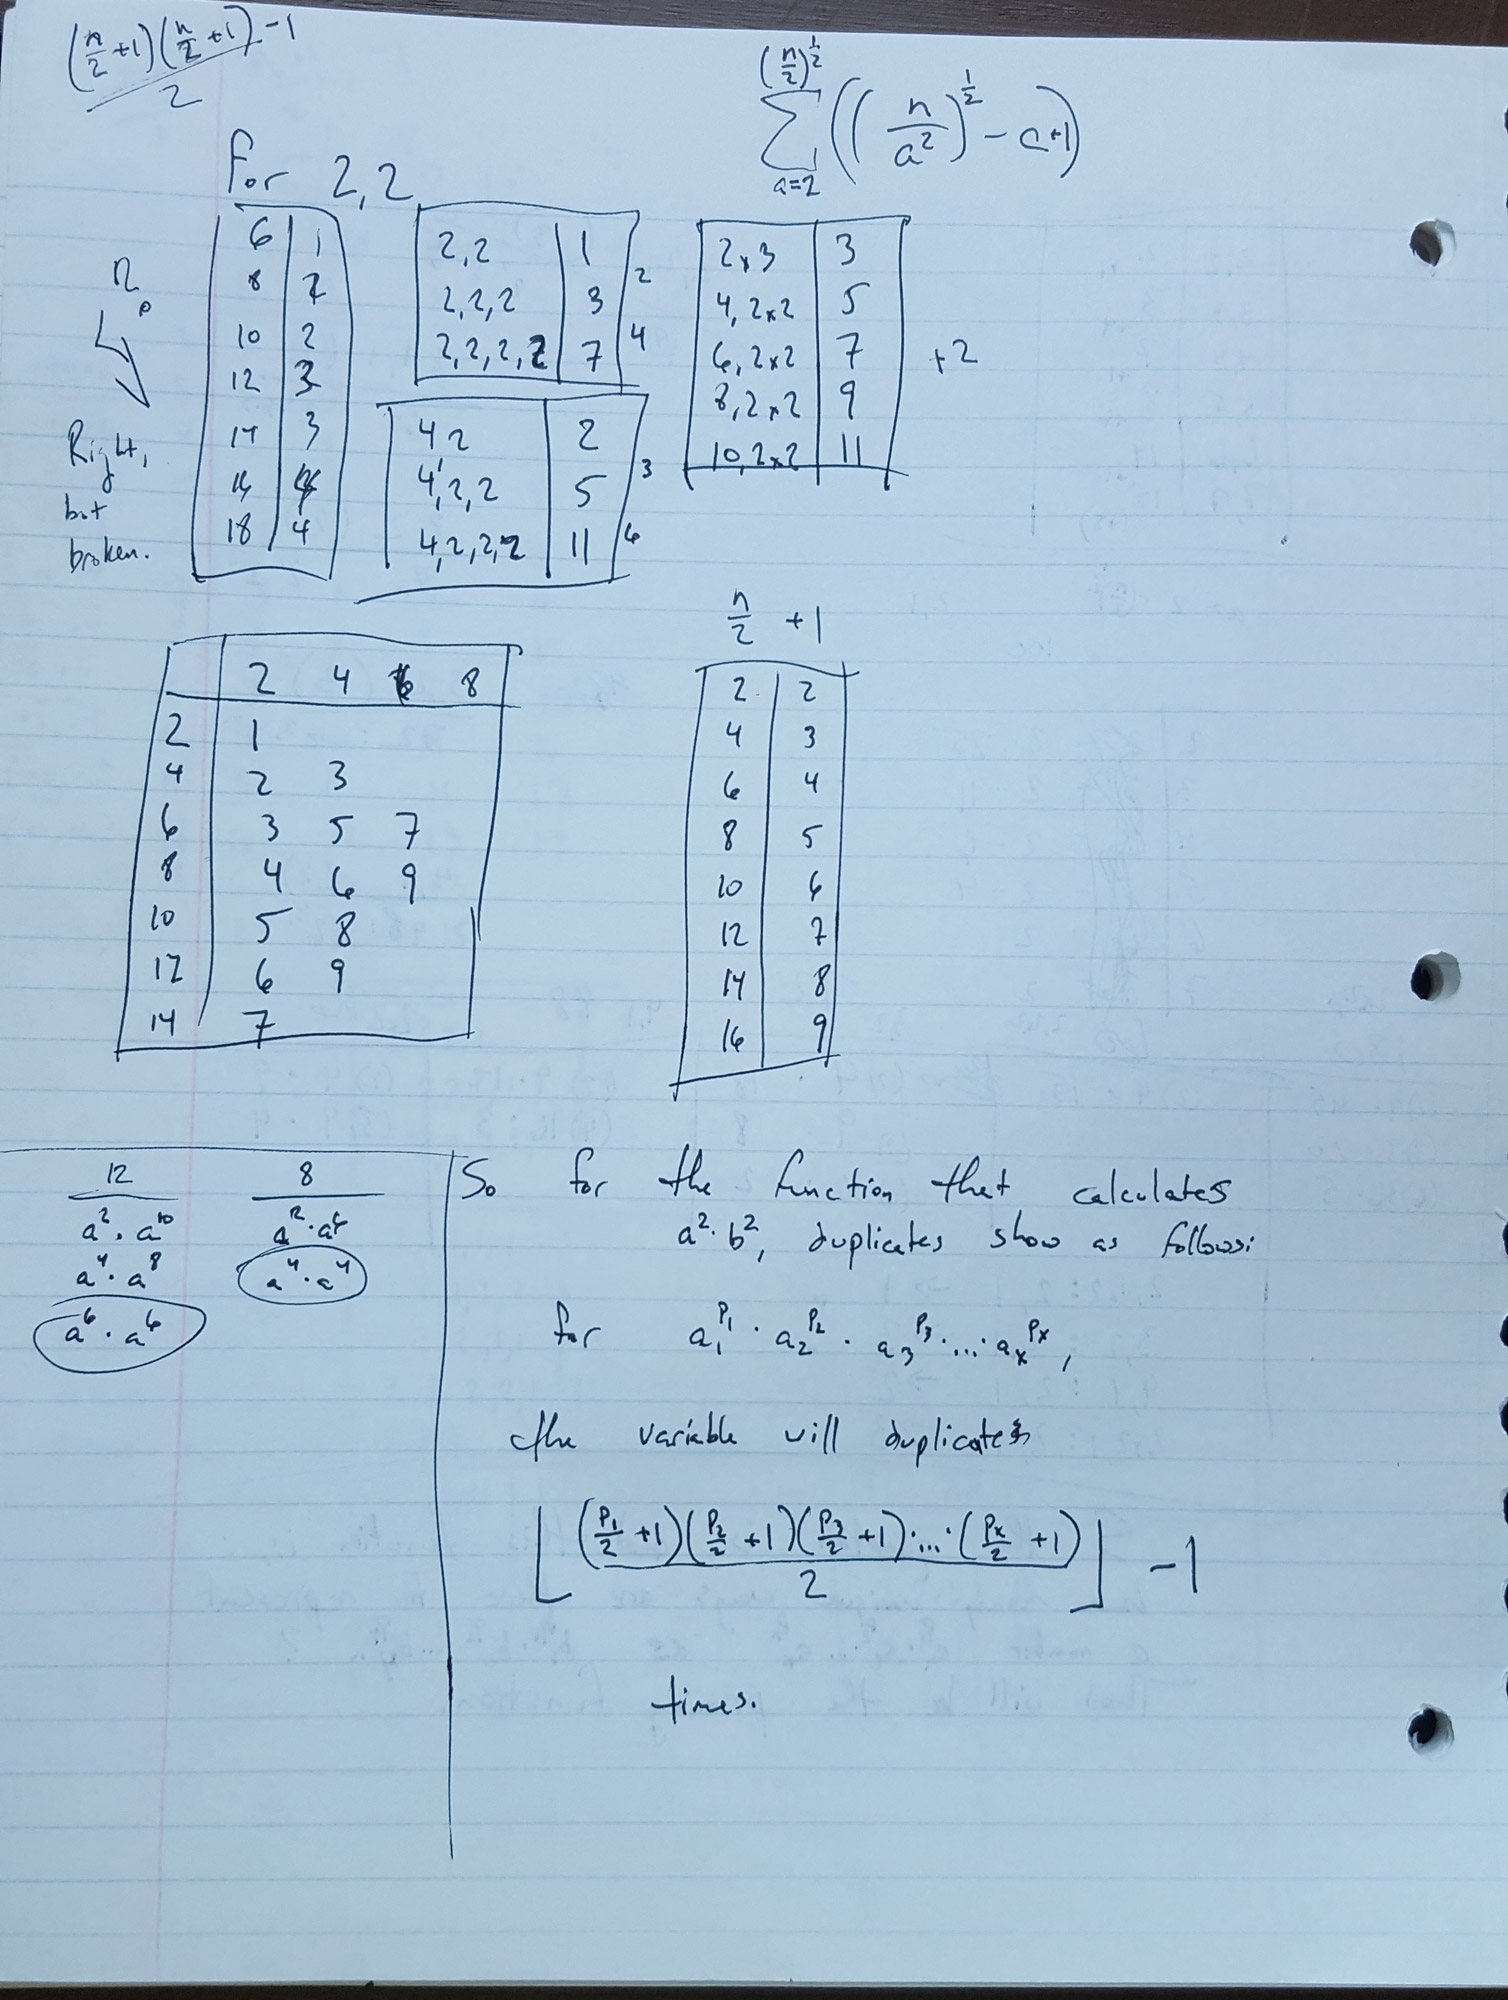 (n/2 +1)(n/2 +1) -1
2
(n/2)^(1/2)
∑ ((n/a²)^(1/2) - a +1)
a=2
For 2,2
n
Right,
but
broken.
6 | 1
8 | 2
10 | 2
12 | 3
14 | 3
16 | 4
18 | 4
2,2 | 1
2,2,2 | 3 2
2,2,2,2 | 7 4
4,2 | 2
4,2,2 | 5 3
4,2,2,2 | 11 6
2x3 | 3
4,2x2 | 5
6,2x2 | 7
8,2x2 | 9
10,2x2 | 11
+2
2 4 6 8
2 | 1
4 | 2 3
6 | 3 5 7
8 | 4 6 9
10 | 5 8
12 | 6 9
14 | 7
n/2 +1
2 | 2
4 | 3
6 | 4
8 | 5
10 | 6
12 | 7
14 | 8
16 | 9
12
a² · a¹⁰
a⁴ · a⁸
a⁶ · a⁶
8
a² · a⁶
a⁴ · a⁴
So for the function that calculates
a² · b², duplicates show as follows:
for a₁^P₁ · a₂^P₂ · a₃^P₃ · ... · aₓ^Pₓ,
the variable will duplicates
⌊ (P₁/2 +1)(P₂/2 +1)(P₃/2 +1) · ... · (Pₓ/2 +1) / 2 ⌋ -1
times.